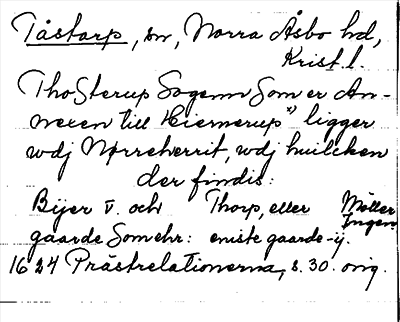 Tåstarp, sn, Norra Åsbo hd,
Krist. l.
ThoSterup Sogenn Som er An-
nexen till Hiernerup x) ligger
wdj Nørreherrit, wdj huilcken
der findis:
Bijer v. och Thorp, eller Møller Ingen
gaarde Somehr: eniste gaarde -ij.
1624 Prästrelationerna, s. 30. orig.